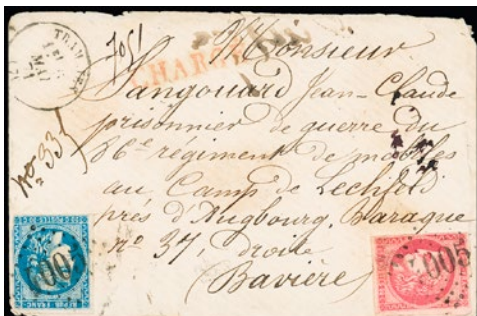 705
CHARGÉ
Monsieur
Sangouard Jean-Claude
prisonnier de guerre du
36e régiment de mobiles
au Camp de Lechfeld
près d'Augbourg, Baraque
no 37, droite
(Bavière)
No 33
MAI
71
REPUB. FRANC.